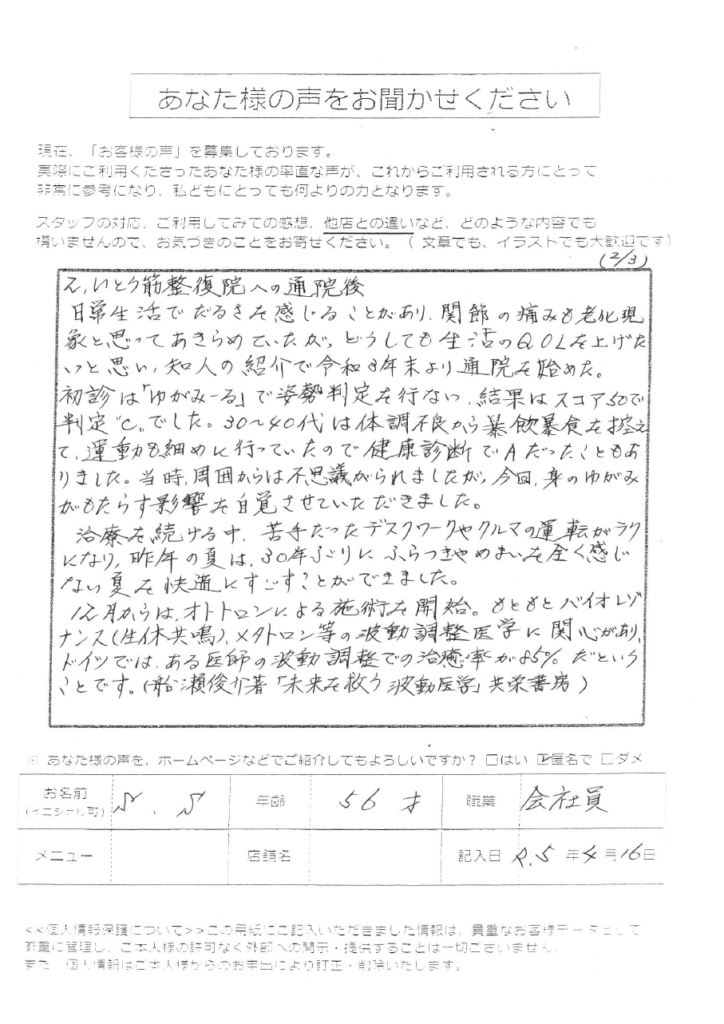 あなた様の声をお聞かせください
現在、「お客様の声」を募集しております。
実際にご利用くださったあなた様の率直な声が、これからご利用される方にとって
非常に参考になり、私どもにとっても何よりの力となります。
スタッフの対応、ご利用してみての感想、他店との違いなど、どのような内容でも
構いませんので、お気づきのことをお寄せください。（ 文章でも、イラストでも大歓迎です）
(2/3)
2, いとう筋整復院への通院後
日常生活でだるさを感じることがあり、関節の痛みも老化現
象と思ってあきらめていたが、どうしても生活のQOLを上げた
いっと思い、知人の紹介で令和3年末より通院を始めた。
初診は「ゆがみーる」で姿勢判定を行ない、結果はスコア50で
判定"C"でした。30〜40代は体調不良から暴飲暴食を控え
て、運動も細めに行っていたので健康診断でAだったこともあ
りました。当時、周囲からは不思議がられましたが、今回、身のゆがみ
がもたらす影響を自覚させていただきました。
治療を続ける中、苦手だったデスクワークやクルマの運転がラク
になり、昨年の夏は、30年ぶりにふらつきやめまいを全く感じ
ない夏を快適にすごすことができました。
12月からは、オトトロンによる施術を開始。もともとバイオレゾ
ナンス(生体共鳴)、メタトロン等の波動調整医学に関心があり、
ドイツでは、ある医師の波動調整での治癒率が85%だという
ことです。(船瀬俊介著「未来を救う波動医学」共栄書房)
※ あなた様の声を、ホームページなどでご紹介してもよろしいですか？ □はい ☑匿名で □ダメ
お名前 (イニシャル可) S. S 年齢 56才 職業 会社員
メニュー 店舗名 記入日 R.5年4月16日
<<個人情報保護について>>この用紙にご記入いただきました情報は、貴重なお客様データとして
厳重に管理し、ご本人様の許可なく外部への開示・提供することは一切ございません。
また、個人情報はご本人様からのお申出により訂正・削除いたします。